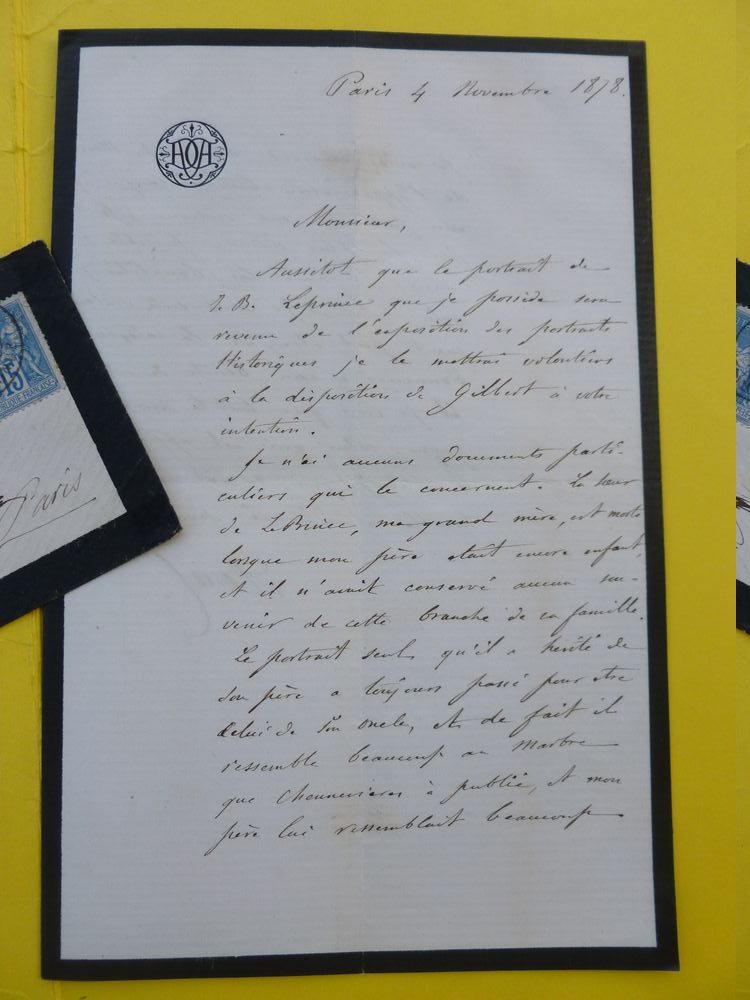 Paris 4 Novembre 1878.
Monsieur,
Aussitot que le portrait de
J. B. Leprince que je possède sera
revenu de l'exposition des portraits
Historiques je le mettrai volontiers
à la disposition de Gilbert à votre
intention.
Je n'ai aucuns documents parti-
culiers qui le concernent. La sœur
de Le Prince, ma grand mère, est morte
lorsque mon père était encore enfant,
et il n'avait conservé aucun sou-
venir de cette branche de sa famille.
Le portrait seul qu'il a hérité de
son père a toujours passé pour être
celui de son oncle, et de fait il
ressemble beaucoup au marbre
que Chennevieres à publié, et mon
père lui ressemblait beaucoup
15
REPUBLIQUE FRANÇAISE
Paris